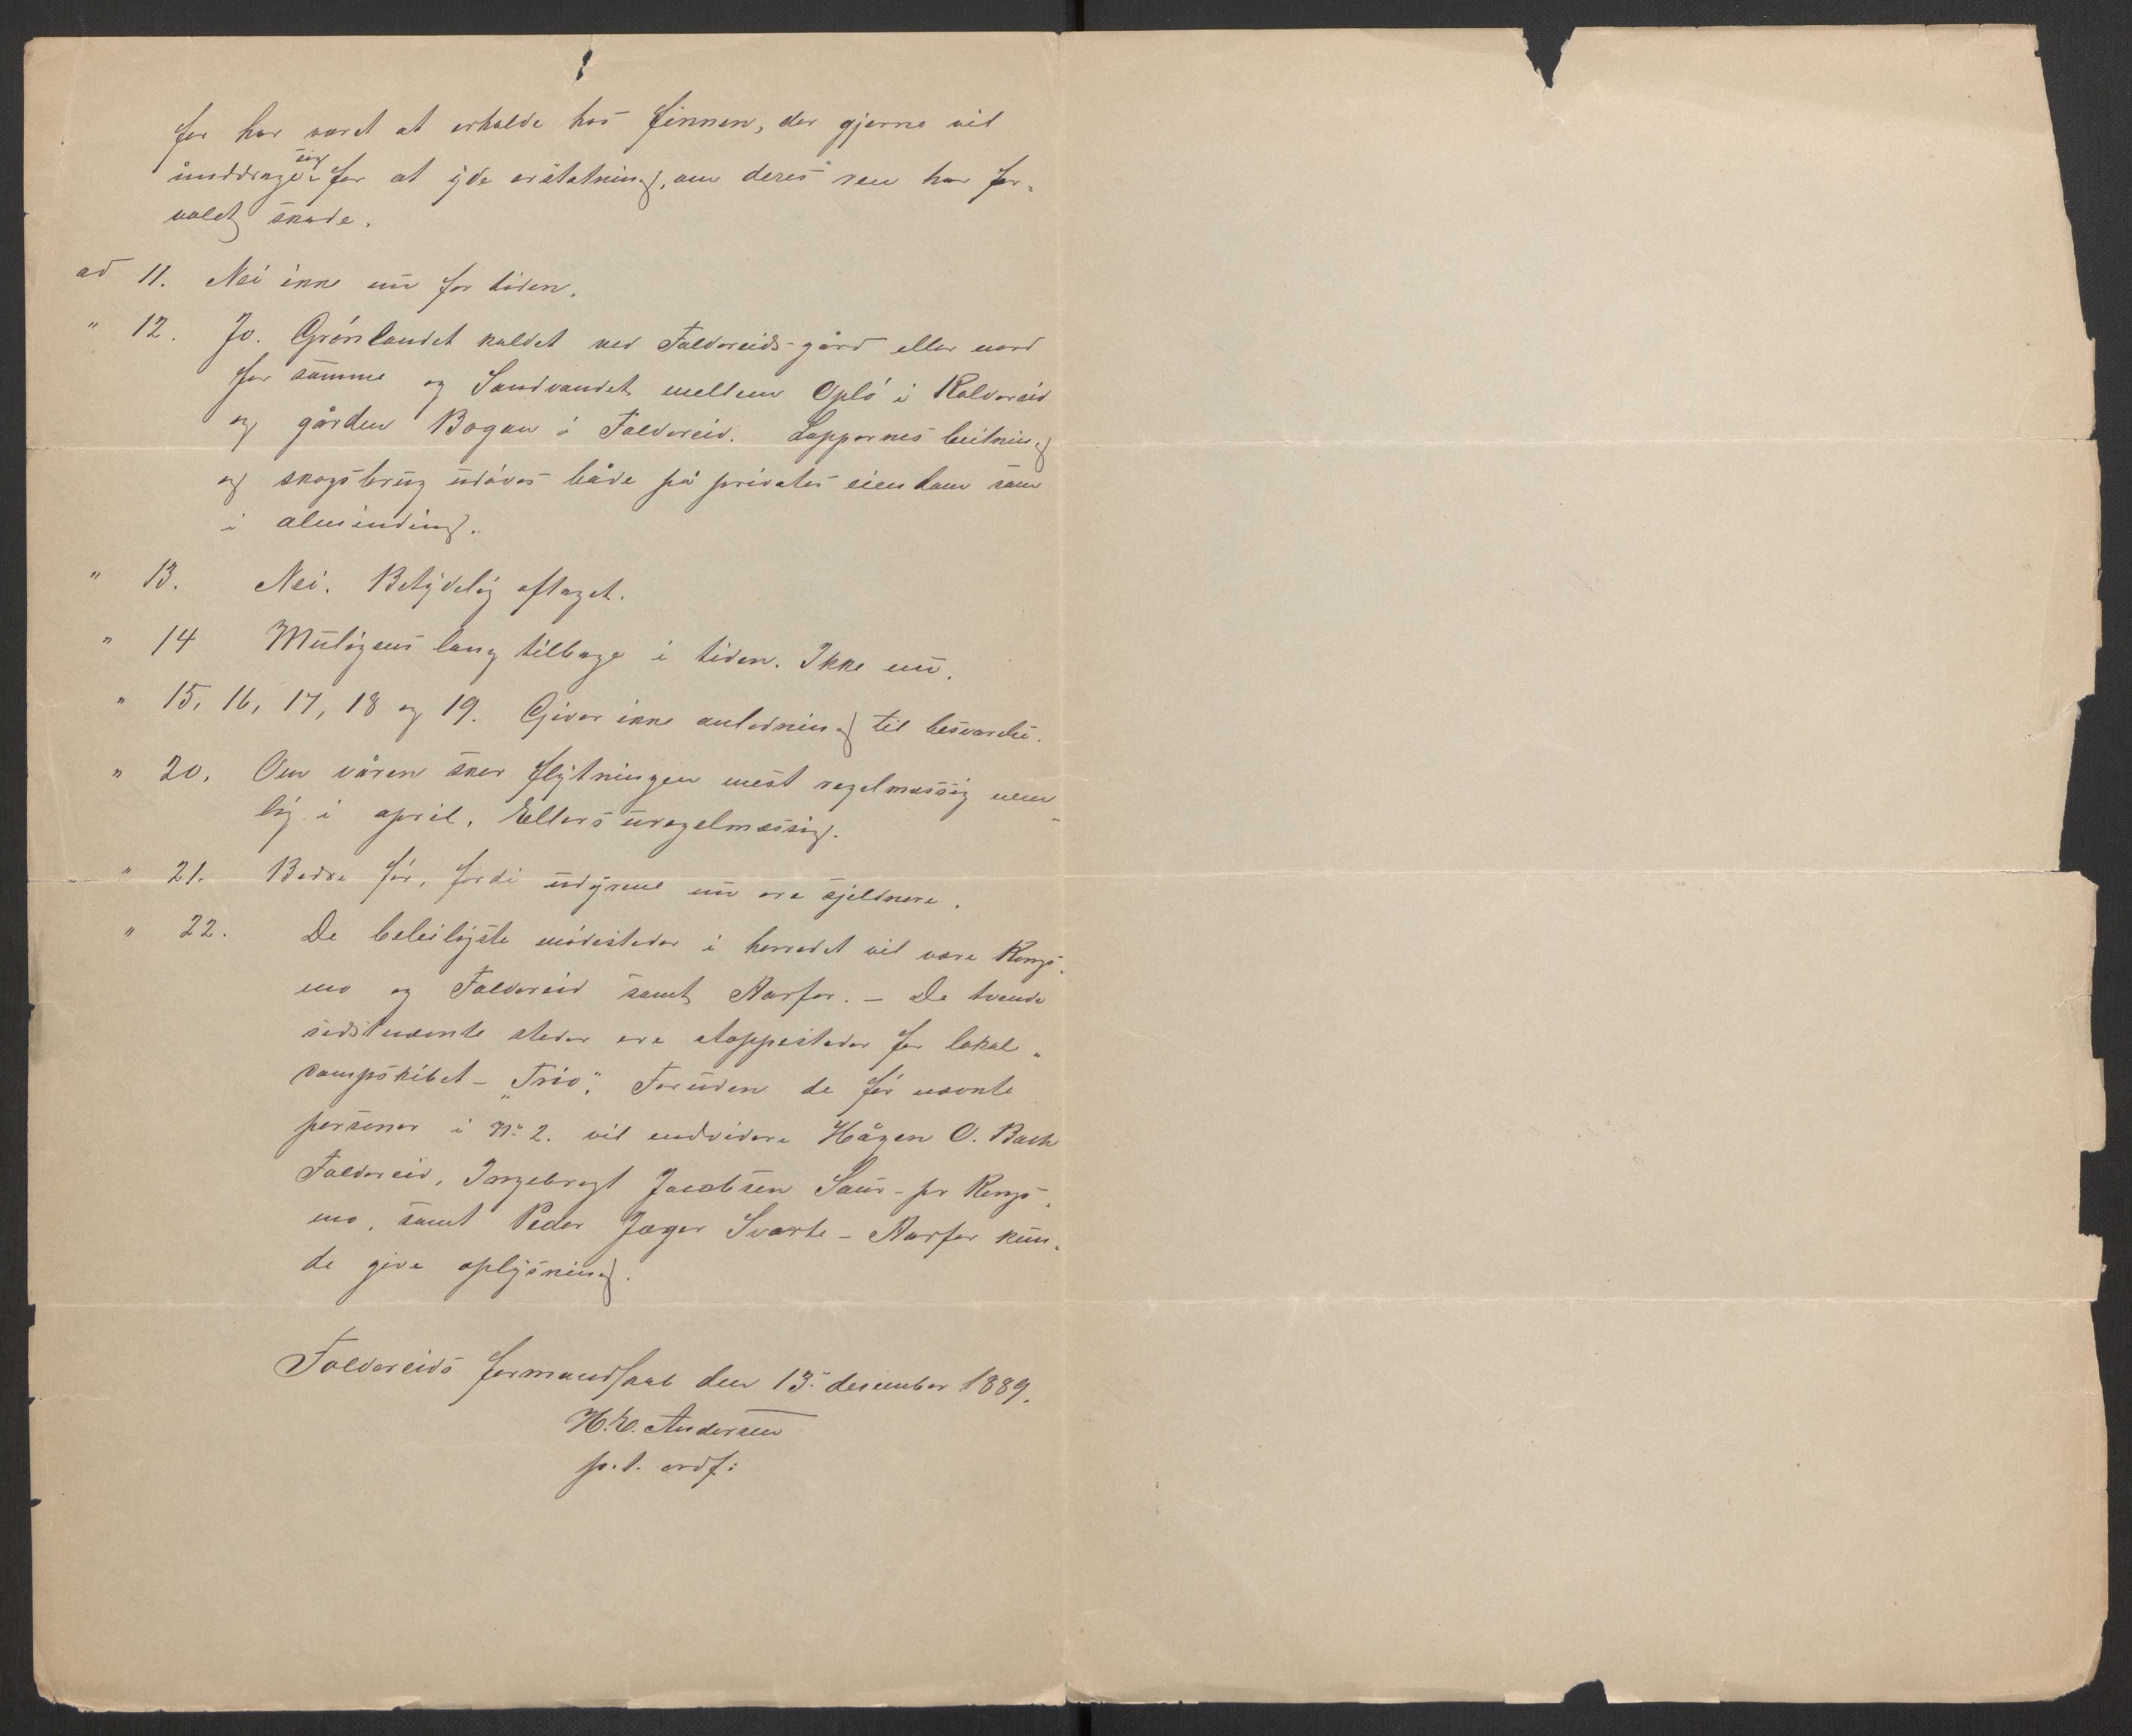 for har været at erholde hos finnen, der gjerne vil
unddrage sig for at yde erstatning, om deres ren har for-
voldt skade.
ad 11. Nei ikke nu for tiden.
" 12. Jo. Grønlandet kaldet ved Foldereids-gård eller nord
for samme og Sandvandet mellem Opló i Kolvereid
og gården Bogan i Foldereid. Lappernes beitning
og skogsbrug udøves både på privates eiendom som
i alminding.
" 13. Nei. Betydelig aftaget.
" 14 Muligens lang tilbage i tiden. Ikke nu.
" 15, 16, 17, 18 og 19. Giver ikke anledning til besvarelse.
" 20. Om våren sker flytningen mest regelmæssig nem-
lig i april. Ellers uregelmæssig.
" 21. Bedre før, fordi udyrene nu ere sjeldnere.
" 22. De beleiligste mødesteder i herredet vil være Kongs-
mo og Foldereid samt Harfar. – De tvende
sidstnævnte steder ere stoppesteder for lokal-
dampskibet – "Trio". Foruden de før nævnte
personer i N: 2. vil endvidere Hågen O. Bach
Foldereid, Ingebregt Jacobsen Saur - pr Kongs-
mo, samt Peder Jæger Svarte - Harfar kun-
de give oplysning.
Foldereids formandskab den 13. desember 1889.
H. E. Andersen
p.t. ordf: